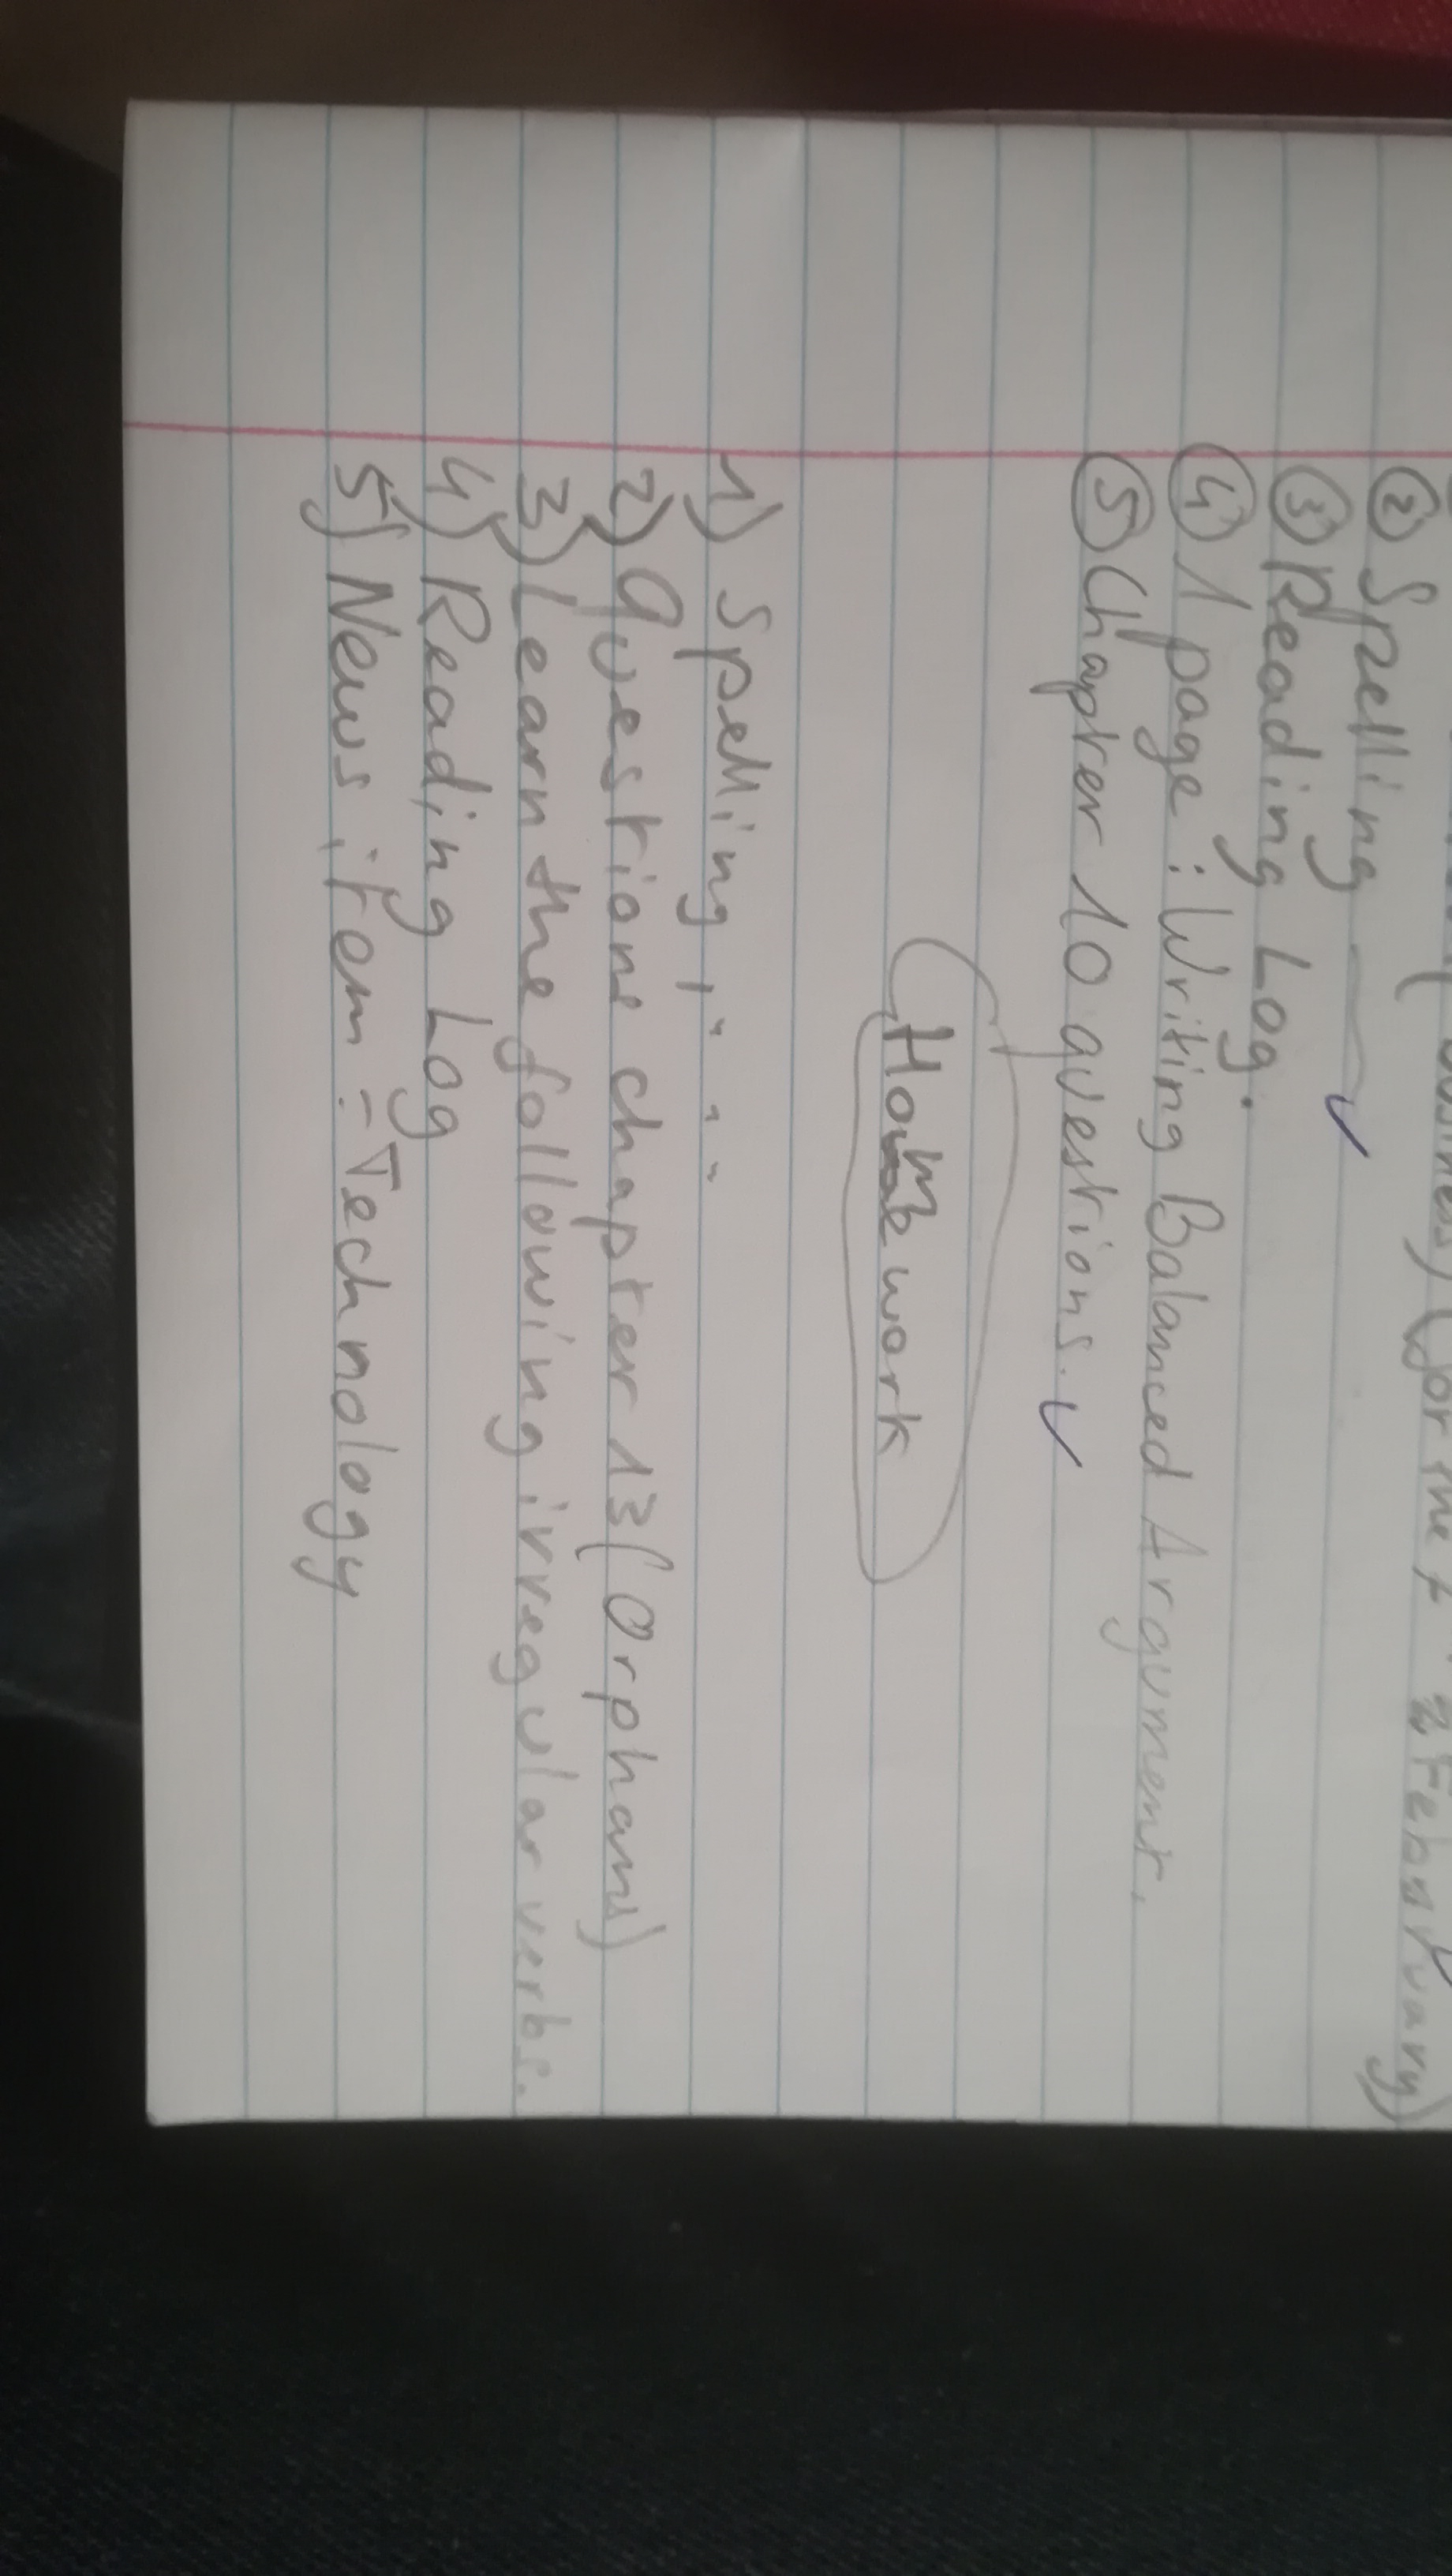 (for the 7 February)
② Spelling
③ Reading Log.
④ 1 page : Writing Balanced Argument.
⑤ Chapter 10 questions.
Homework
1) Spelling , " " "
2) Questions chapter 13 (Orphans)
3) Learn the following irregular verbs.
4) Reading Log
5) News item = Technology